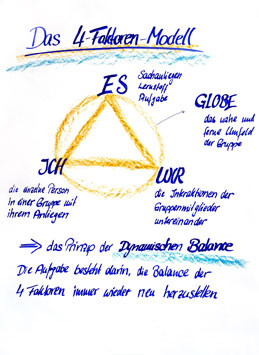 Das 4-Faktoren-Modell
ES
Sachanliegen
Lernstoff
Aufgabe
GLOBE
das nahe und
ferne Umfeld
der Gruppe
ICH
die einzelne Person
in einer Gruppe mit
ihrem Anliegen
WIR
die Interaktionen der
Gruppenmitglieder
untereinander
⇒ das Prinzip der Dynamischen Balance
Die Aufgabe besteht darin, die Balance der
4 Faktoren immer wieder neu herzustellen